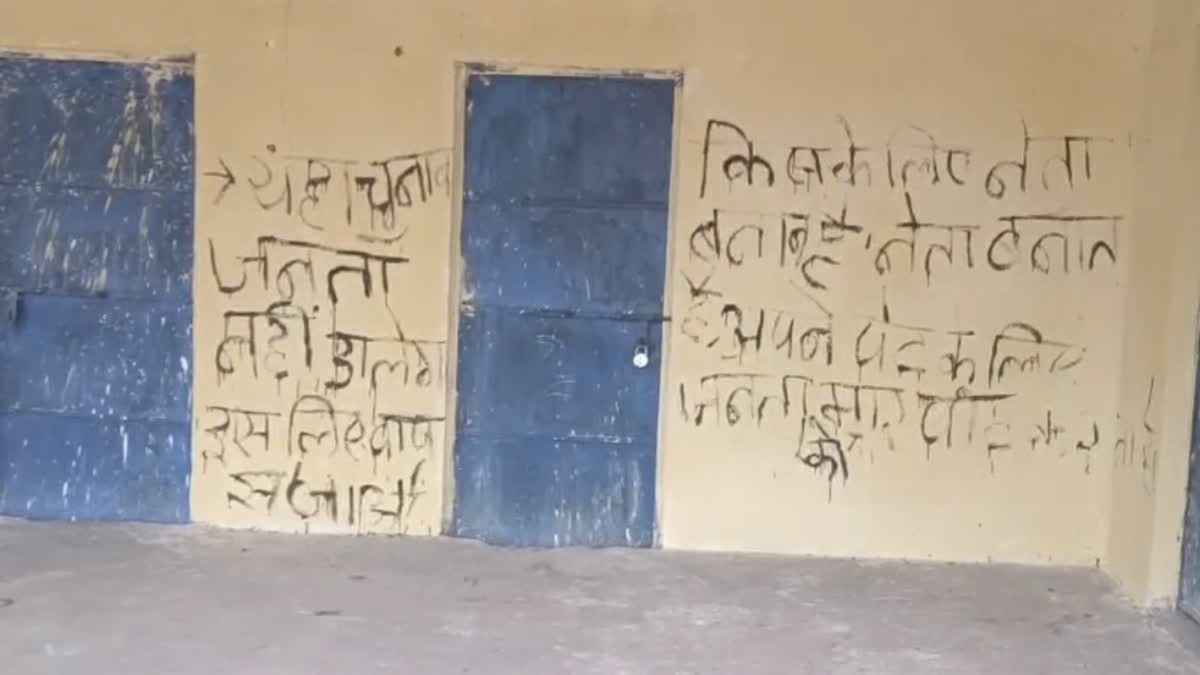 → यहा चुनाव
जनता
नहीं डालेगा
इस लिए वाप
स जाओ
किसके लिए नेता
बनता है, नेता बनात
है अपने पेट के लिए
जनता को मार पीट